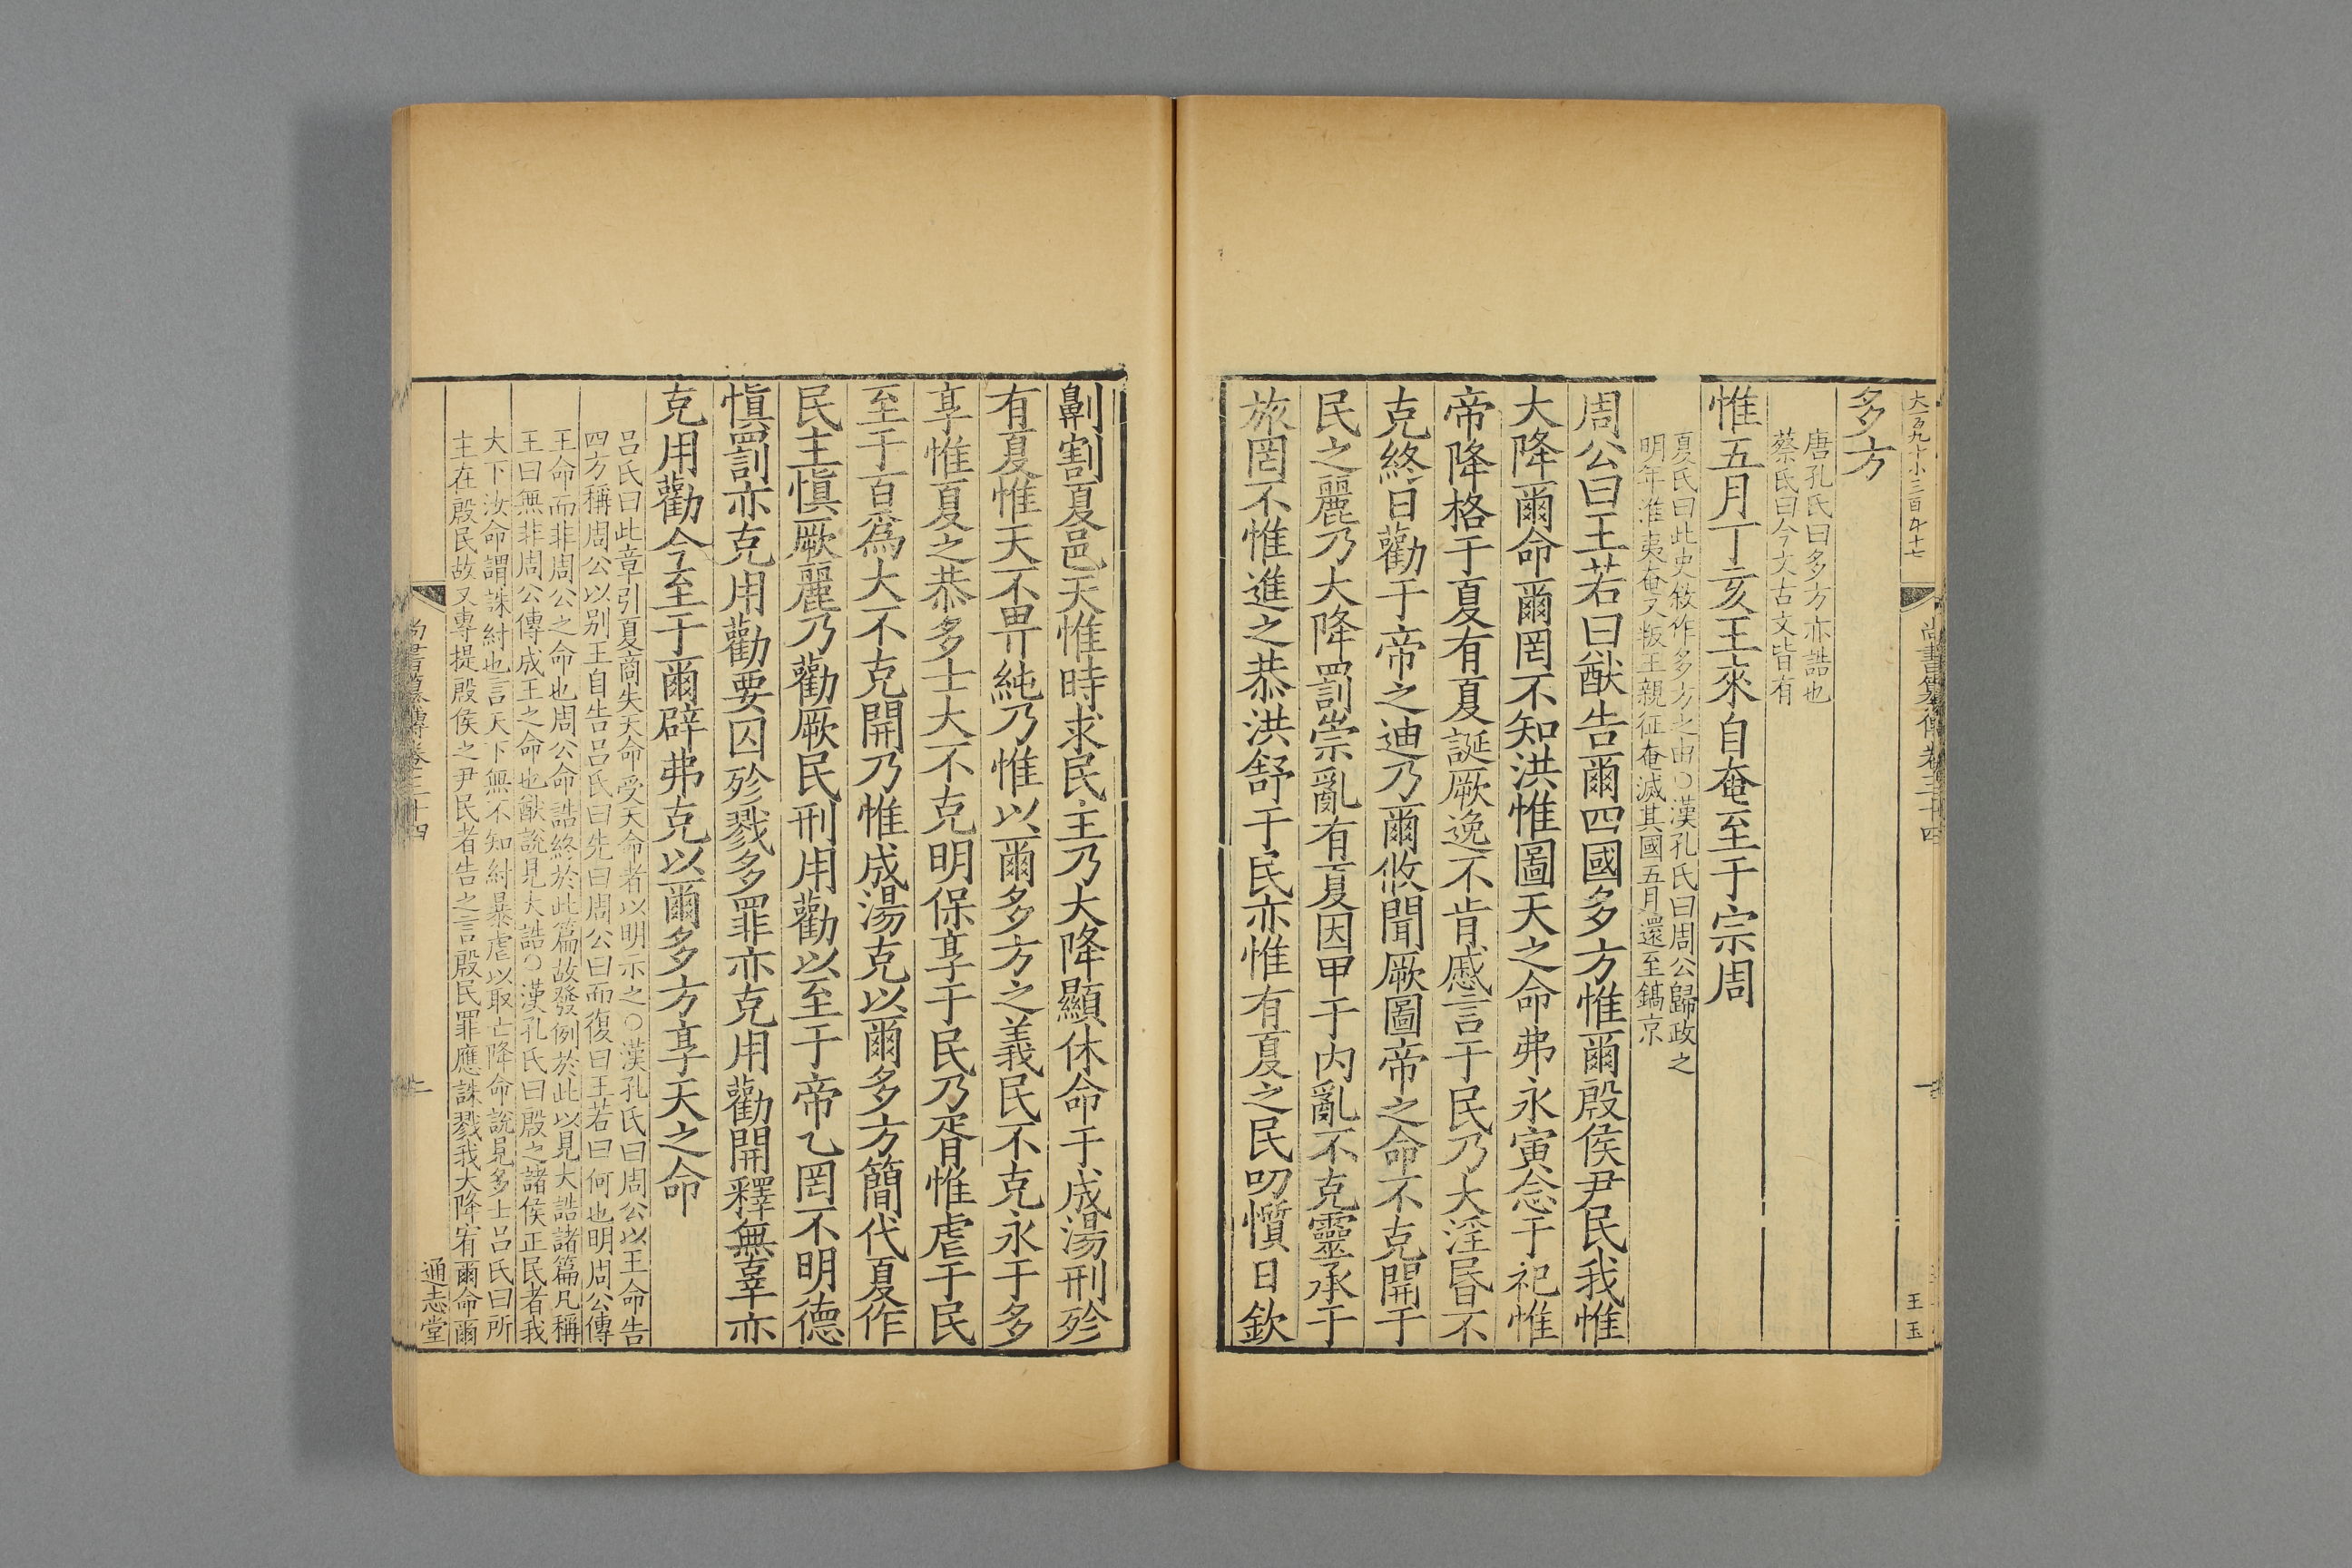 多方
唐孔氏曰多方亦誥也
蔡氏曰今文古文皆有
惟五月丁亥王來自奄至于宗周
夏氏曰此史敘作多方之由○漢孔氏曰周公歸政之
明年淮夷奄又叛王親征奄滅其國五月還至鎬京
周公曰王若曰猷告爾四國多方惟爾殷侯尹民我惟
大降爾命爾罔不知洪惟圖天之命弗永寅念于祀惟
帝降格于夏有夏誕厥逸不肯慼言于民乃大淫昬不
克終日勸于帝之迪乃爾攸聞厥圖帝之命不克開于
民之麗乃大降罰崇亂有夏因甲于内亂不克靈承于
旅罔不惟進之恭洪舒于民亦惟有夏之民叨懫日欽
劓割夏邑天惟時求民主乃大降顯休命于成湯刑殄
有夏惟天不畀純乃惟以爾多方之義民不克永于多
享惟夏之恭多士大不克明保享于民乃胥惟虐于民
至于百爲大不克開乃惟成湯克以爾多方簡代夏作
民主愼厥麗乃勸厥民刑用勸以至于帝乙罔不明德
愼罰亦克用勸要囚殄戮多罪亦克用勸開釋無辜亦
克用勸今至于爾辟弗克以爾多方享天之命
呂氏曰此章引夏商失天命受天命者以明示之○漢孔氏曰周公以王命告
四方稱周公以别王自告呂氏曰先曰周公曰而復曰王若曰何也明周公傳
王命而非周公之命也周公命誥終於此篇故發例於此以見大誥諸篇凡稱
王曰無非周公傳成王之命也猷說見大誥○漢孔氏曰殷之諸侯正民者我
大下汝命謂誅紂也言天下無不知紂暴虐以取亡降命說見多士呂氏曰所
主在殷民故又專提殷侯之尹民者告之言殷民罪應誅戮我大降宥爾命爾
尚書纂傳卷三十四
通志堂